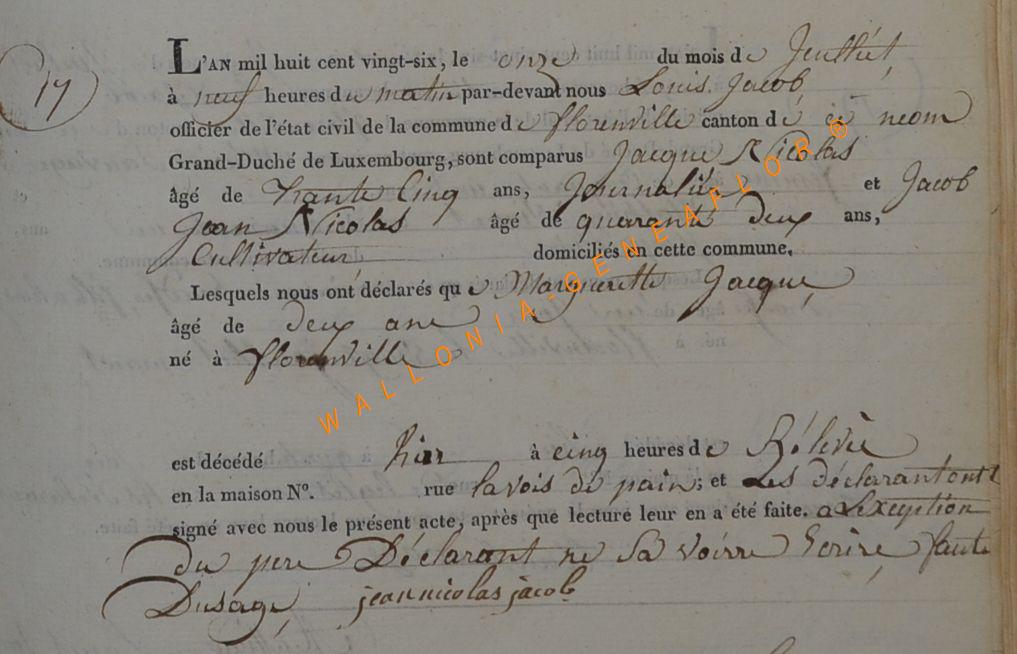 17
L'AN mil huit cent vingt-six, le onze du mois de Jeuthét
à neuf heures du matin par-devant nous Louis Jacob
officier de l'état civil de la commune de florenville canton dé neom
Grand-Duché de Luxembourg, sont comparus Jacque Nicolas
âgé de trante Cinq ans, Journalier et Jacob
Jean Nicolas âgé de quarante deux ans,
Cultivateur domiciliés en cette commune.
Lesquels nous ont déclarés que Marguerette Jacque
âgé de deux ans
né à florenville
est décédé hier à cinq heures de Rélevée
en la maison N°. rue lavois de pain; et Les déclarant ont
signé avec nous le présent acte, après que lecture leur en a été faite. a Lexeption
du pere Déclarant ne Sa voirre Ecrire, faute
Dusage, jean nicolas jacob
WALLONIA-GENEAFLOR ®